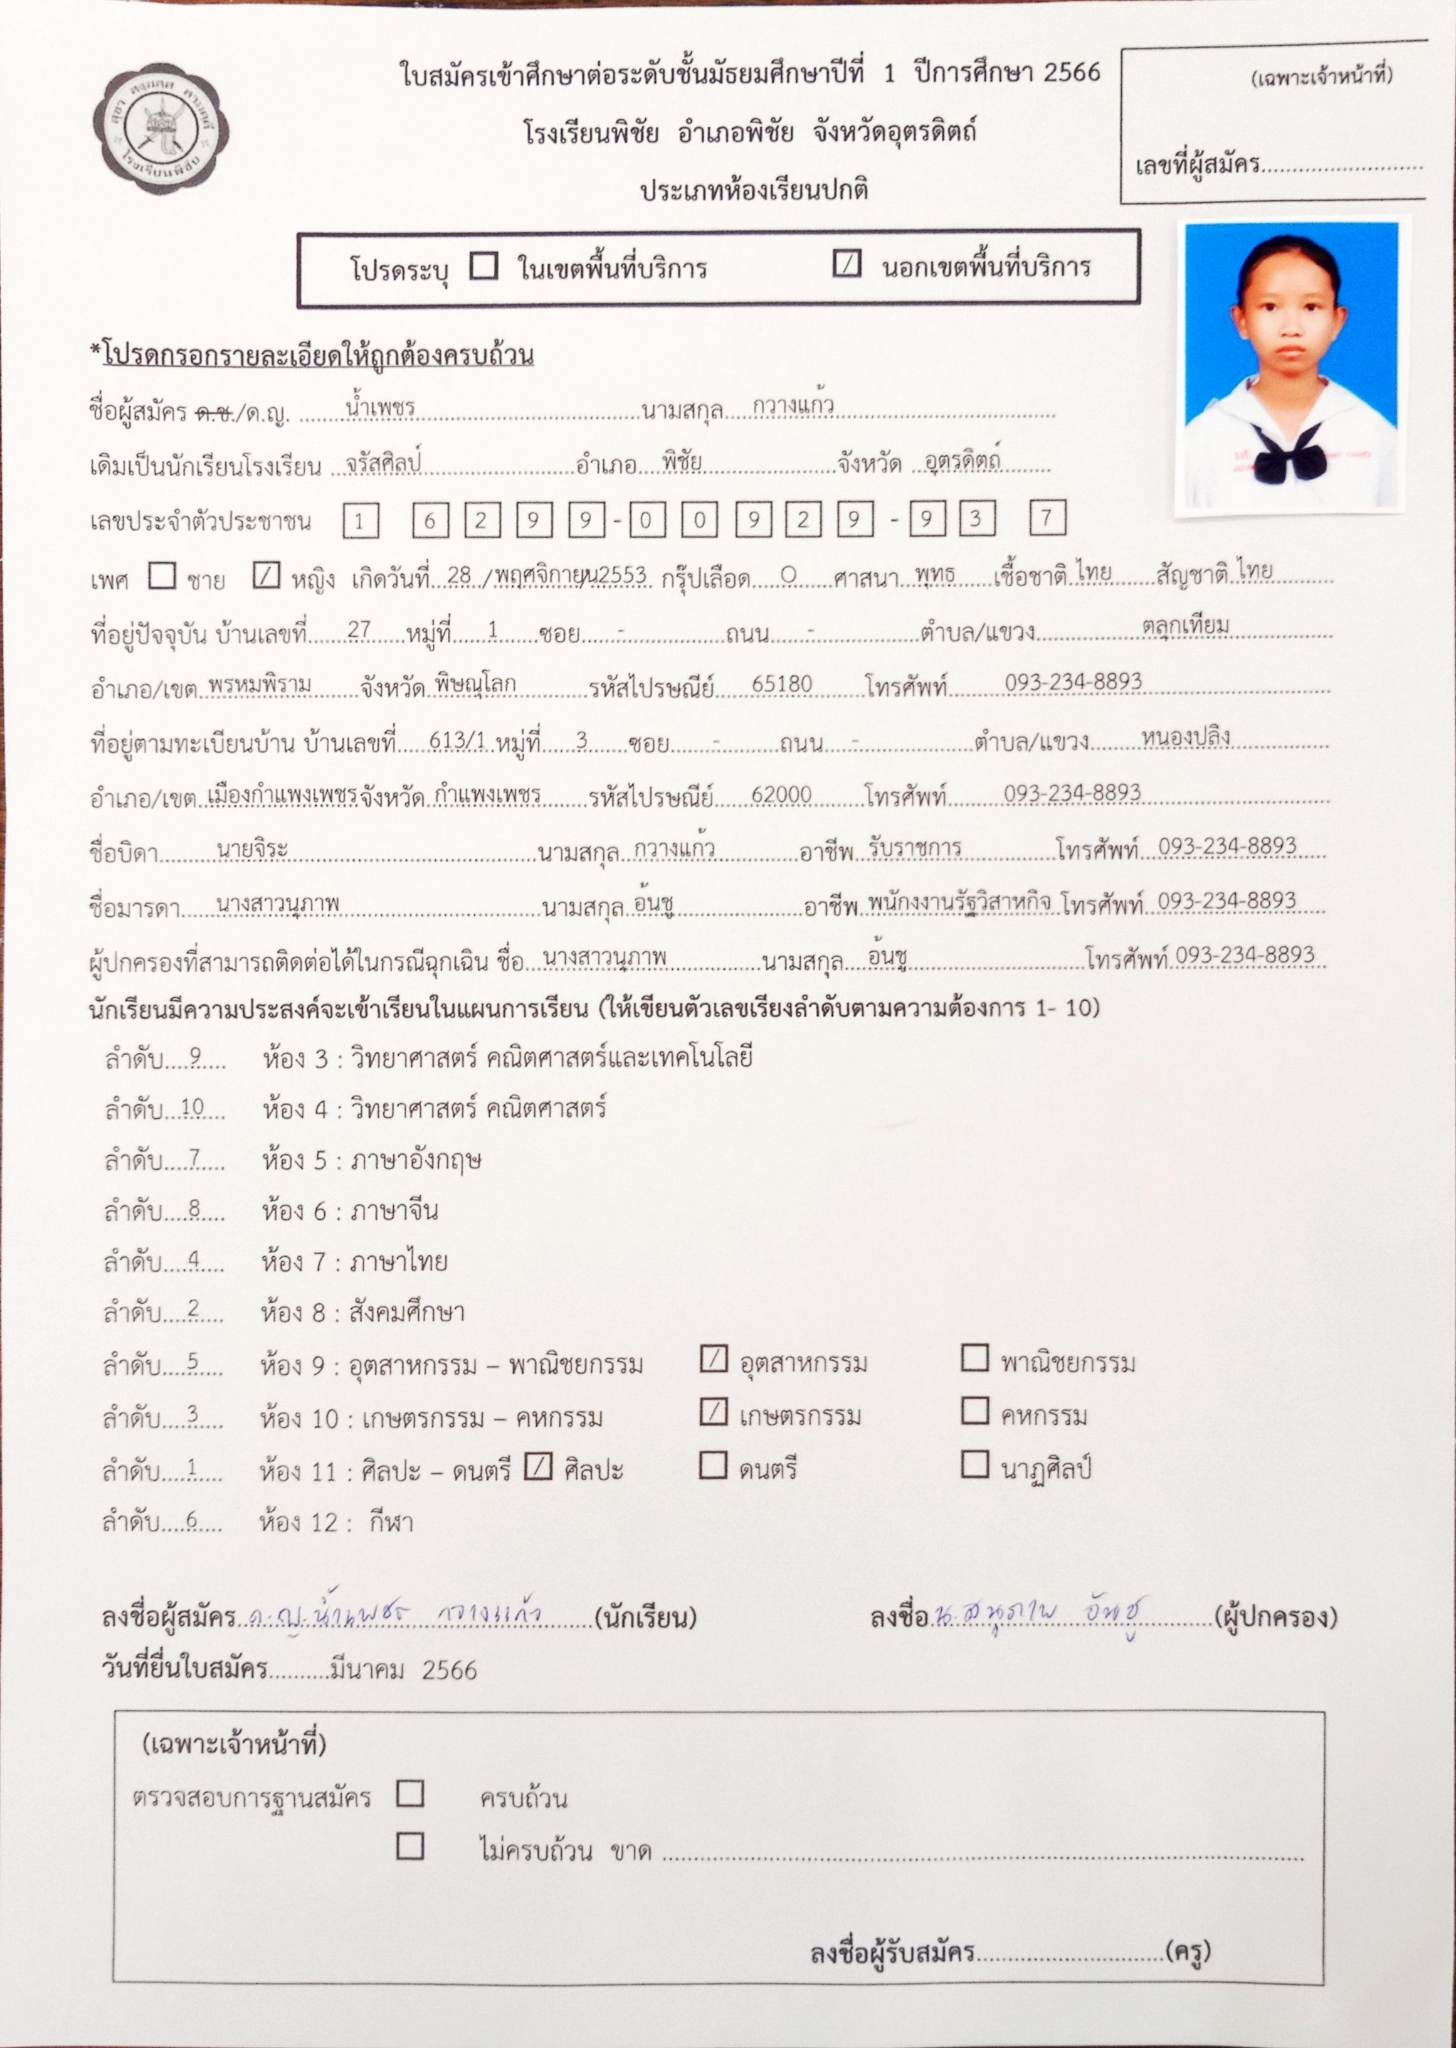 สุชา สงฺฆสฺส สามคฺคี
โรงเรียนพิชัย
ใบสมัครเข้าศึกษาต่อระดับชั้นมัธยมศึกษาปีที่ 1 ปีการศึกษา 2566
(เฉพาะเจ้าหน้าที่)
โรงเรียนพิชัย อำเภอพิชัย จังหวัดอุตรดิตถ์
เลขที่ผู้สมัคร..........................
ประเภทห้องเรียนปกติ
โปรดระบุ ☐ ในเขตพื้นที่บริการ ☑ นอกเขตพื้นที่บริการ
*โปรดกรอกรายละเอียดให้ถูกต้องครบถ้วน
ชื่อผู้สมัคร ด.ช./ด.ญ. น้ำเพชร นามสกุล กวางแก้ว
เดิมเป็นนักเรียนโรงเรียน จรัสศิลป์ อำเภอ พิชัย จังหวัด อุตรดิตถ์
เลขประจำตัวประชาชน 1 6 2 9 9 - 0 0 9 2 9 - 9 3 7
เพศ ☐ ชาย ☑ หญิง เกิดวันที่ 28 /พฤศจิกายน/2553 กรุ๊ปเลือด O ศาสนา พุทธ เชื้อชาติ ไทย สัญชาติ ไทย
ที่อยู่ปัจจุบัน บ้านเลขที่ 27 หมู่ที่ 1 ซอย - ถนน - ตำบล/แขวง ตลุกเทียม
อำเภอ/เขต พรหมพิราม จังหวัด พิษณุโลก รหัสไปรษณีย์ 65180 โทรศัพท์ 093-234-8893
ที่อยู่ตามทะเบียนบ้าน บ้านเลขที่ 613/1 หมู่ที่ 3 ซอย - ถนน - ตำบล/แขวง หนองปลิง
อำเภอ/เขต เมืองกำแพงเพชร จังหวัด กำแพงเพชร รหัสไปรษณีย์ 62000 โทรศัพท์ 093-234-8893
ชื่อบิดา นายจิระ นามสกุล กวางแก้ว อาชีพ รับราชการ โทรศัพท์ 093-234-8893
ชื่อมารดา นางสาวนุภาพ นามสกุล อ้นชู อาชีพ พนักงงานรัฐวิสาหกิจ โทรศัพท์ 093-234-8893
ผู้ปกครองที่สามารถติดต่อได้ในกรณีฉุกเฉิน ชื่อ นางสาวนุภาพ นามสกุล อ้นชู โทรศัพท์ 093-234-8893
นักเรียนมีความประสงค์จะเข้าเรียนในแผนการเรียน (ให้เขียนตัวเลขเรียงลำดับตามความต้องการ 1- 10)
ลำดับ 9 ห้อง 3 : วิทยาศาสตร์ คณิตศาสตร์และเทคโนโลยี
ลำดับ 10 ห้อง 4 : วิทยาศาสตร์ คณิตศาสตร์
ลำดับ 7 ห้อง 5 : ภาษาอังกฤษ
ลำดับ 8 ห้อง 6 : ภาษาจีน
ลำดับ 4 ห้อง 7 : ภาษาไทย
ลำดับ 2 ห้อง 8 : สังคมศึกษา
ลำดับ 5 ห้อง 9 : อุตสาหกรรม – พาณิชยกรรม ☑ อุตสาหกรรม ☐ พาณิชยกรรม
ลำดับ 3 ห้อง 10 : เกษตรกรรม – คหกรรม ☑ เกษตรกรรม ☐ คหกรรม
ลำดับ 1 ห้อง 11 : ศิลปะ – ดนตรี ☑ ศิลปะ ☐ ดนตรี ☐ นาฏศิลป์
ลำดับ 6 ห้อง 12 : กีฬา
ลงชื่อผู้สมัคร ด.ญ.น้ำเพชร กวางแก้ว (นักเรียน) ลงชื่อ น.ส.นุภาพ อ้นชู (ผู้ปกครอง)
วันที่ยื่นใบสมัคร..........มีนาคม 2566
(เฉพาะเจ้าหน้าที่)
ตรวจสอบการฐานสมัคร ☐ ครบถ้วน
☐ ไม่ครบถ้วน ขาด
ลงชื่อผู้รับสมัคร..............................(ครู)